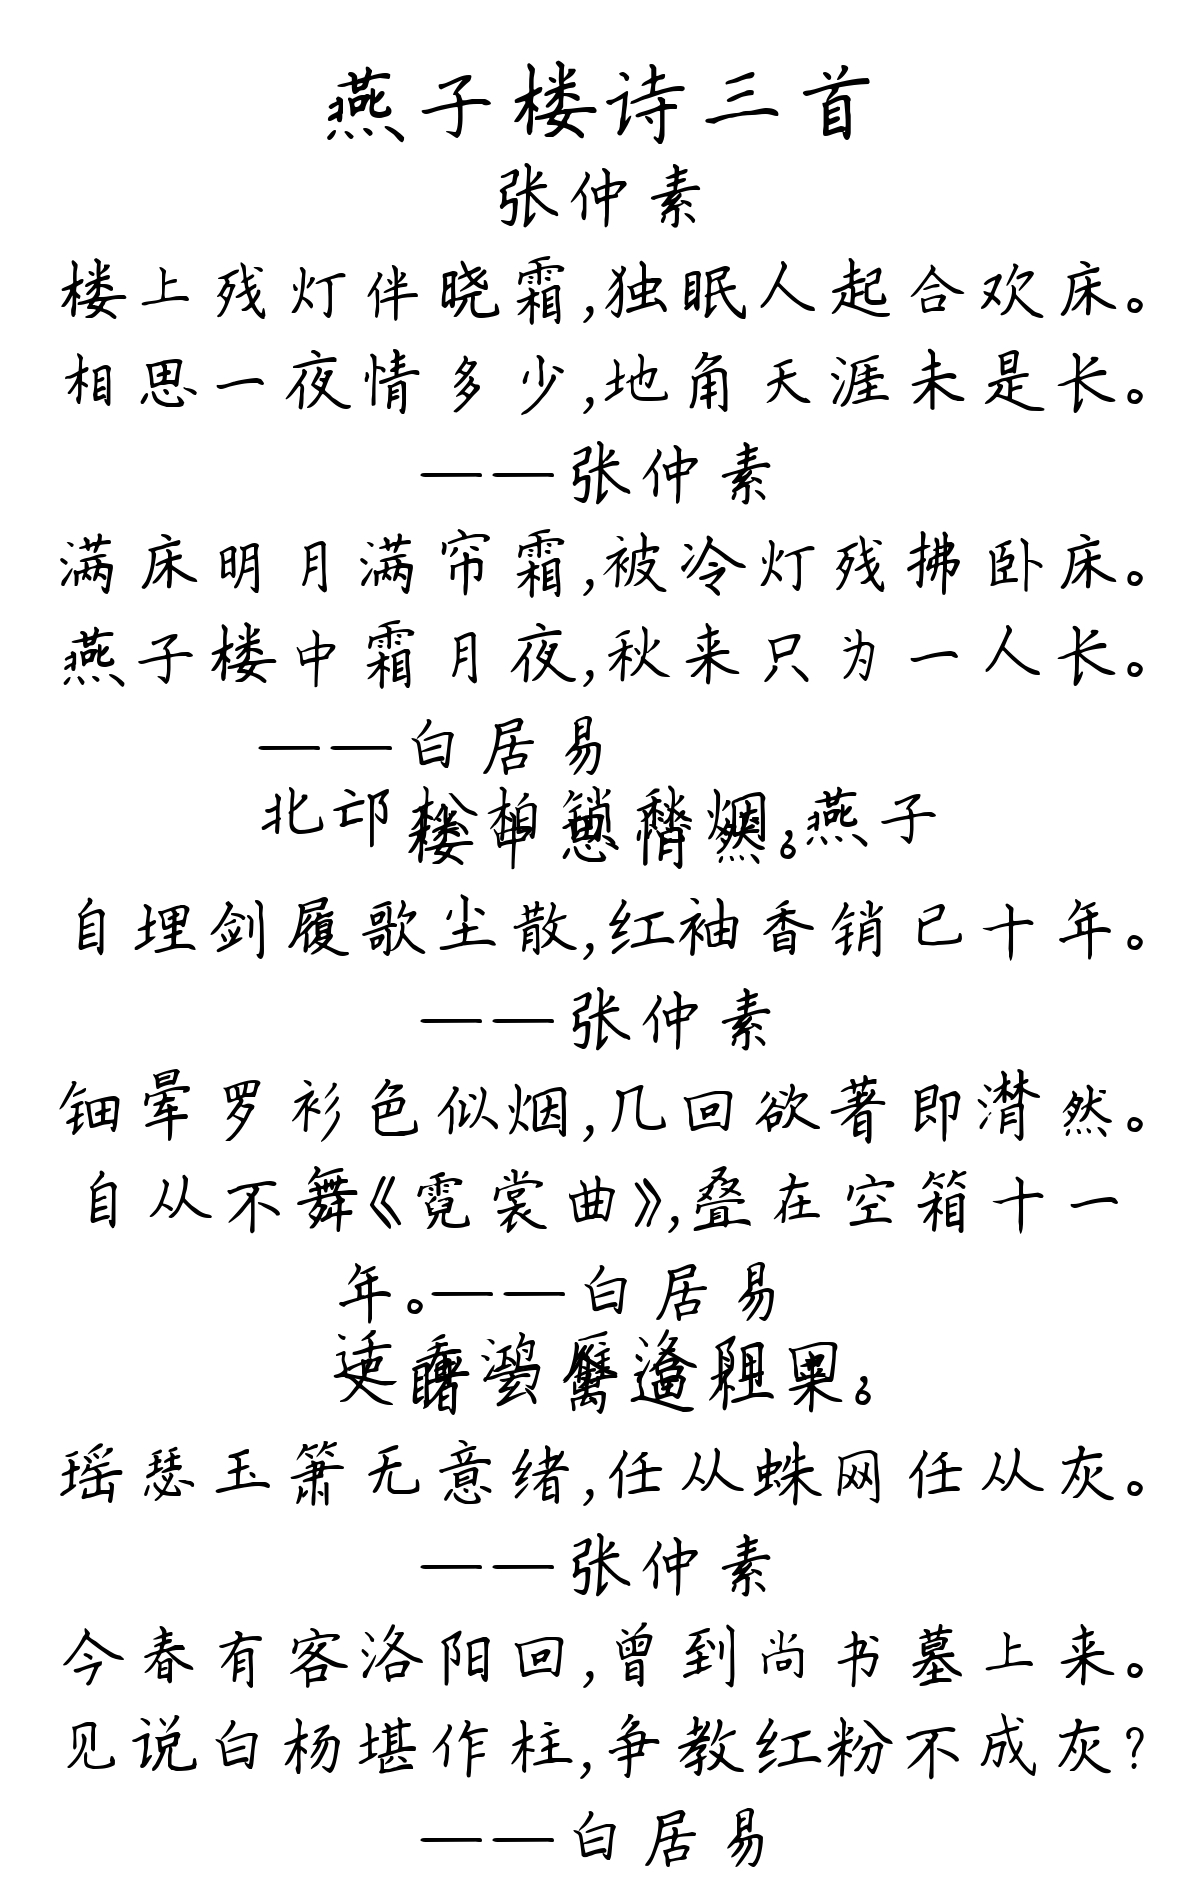 燕子楼诗三首
张仲素
楼上残灯伴晓霜,独眠人起合欢床。
相思一夜情多少,地角天涯未是长。
——张仲素
满床明月满帘霜,被冷灯残拂卧床。
燕子楼中霜月夜,秋来只为一人长。
——白居易
北邙松柏锁愁烟,燕子
楼中思悄然。
自埋剑履歌尘散,红袖香销已十年。
——张仲素
钿晕罗衫色似烟,几回欲著即潸然。
自从不舞《霓裳曲》,叠在空箱十一
年。——白居易
适看鸿雁洛阳回,
又睹玄禽逼社来。
瑶瑟玉箫无意绪,任从蛛网任从灰。
——张仲素
今春有客洛阳回,曾到尚书墓上来。
见说白杨堪作柱,争教红粉不成灰?
——白居易